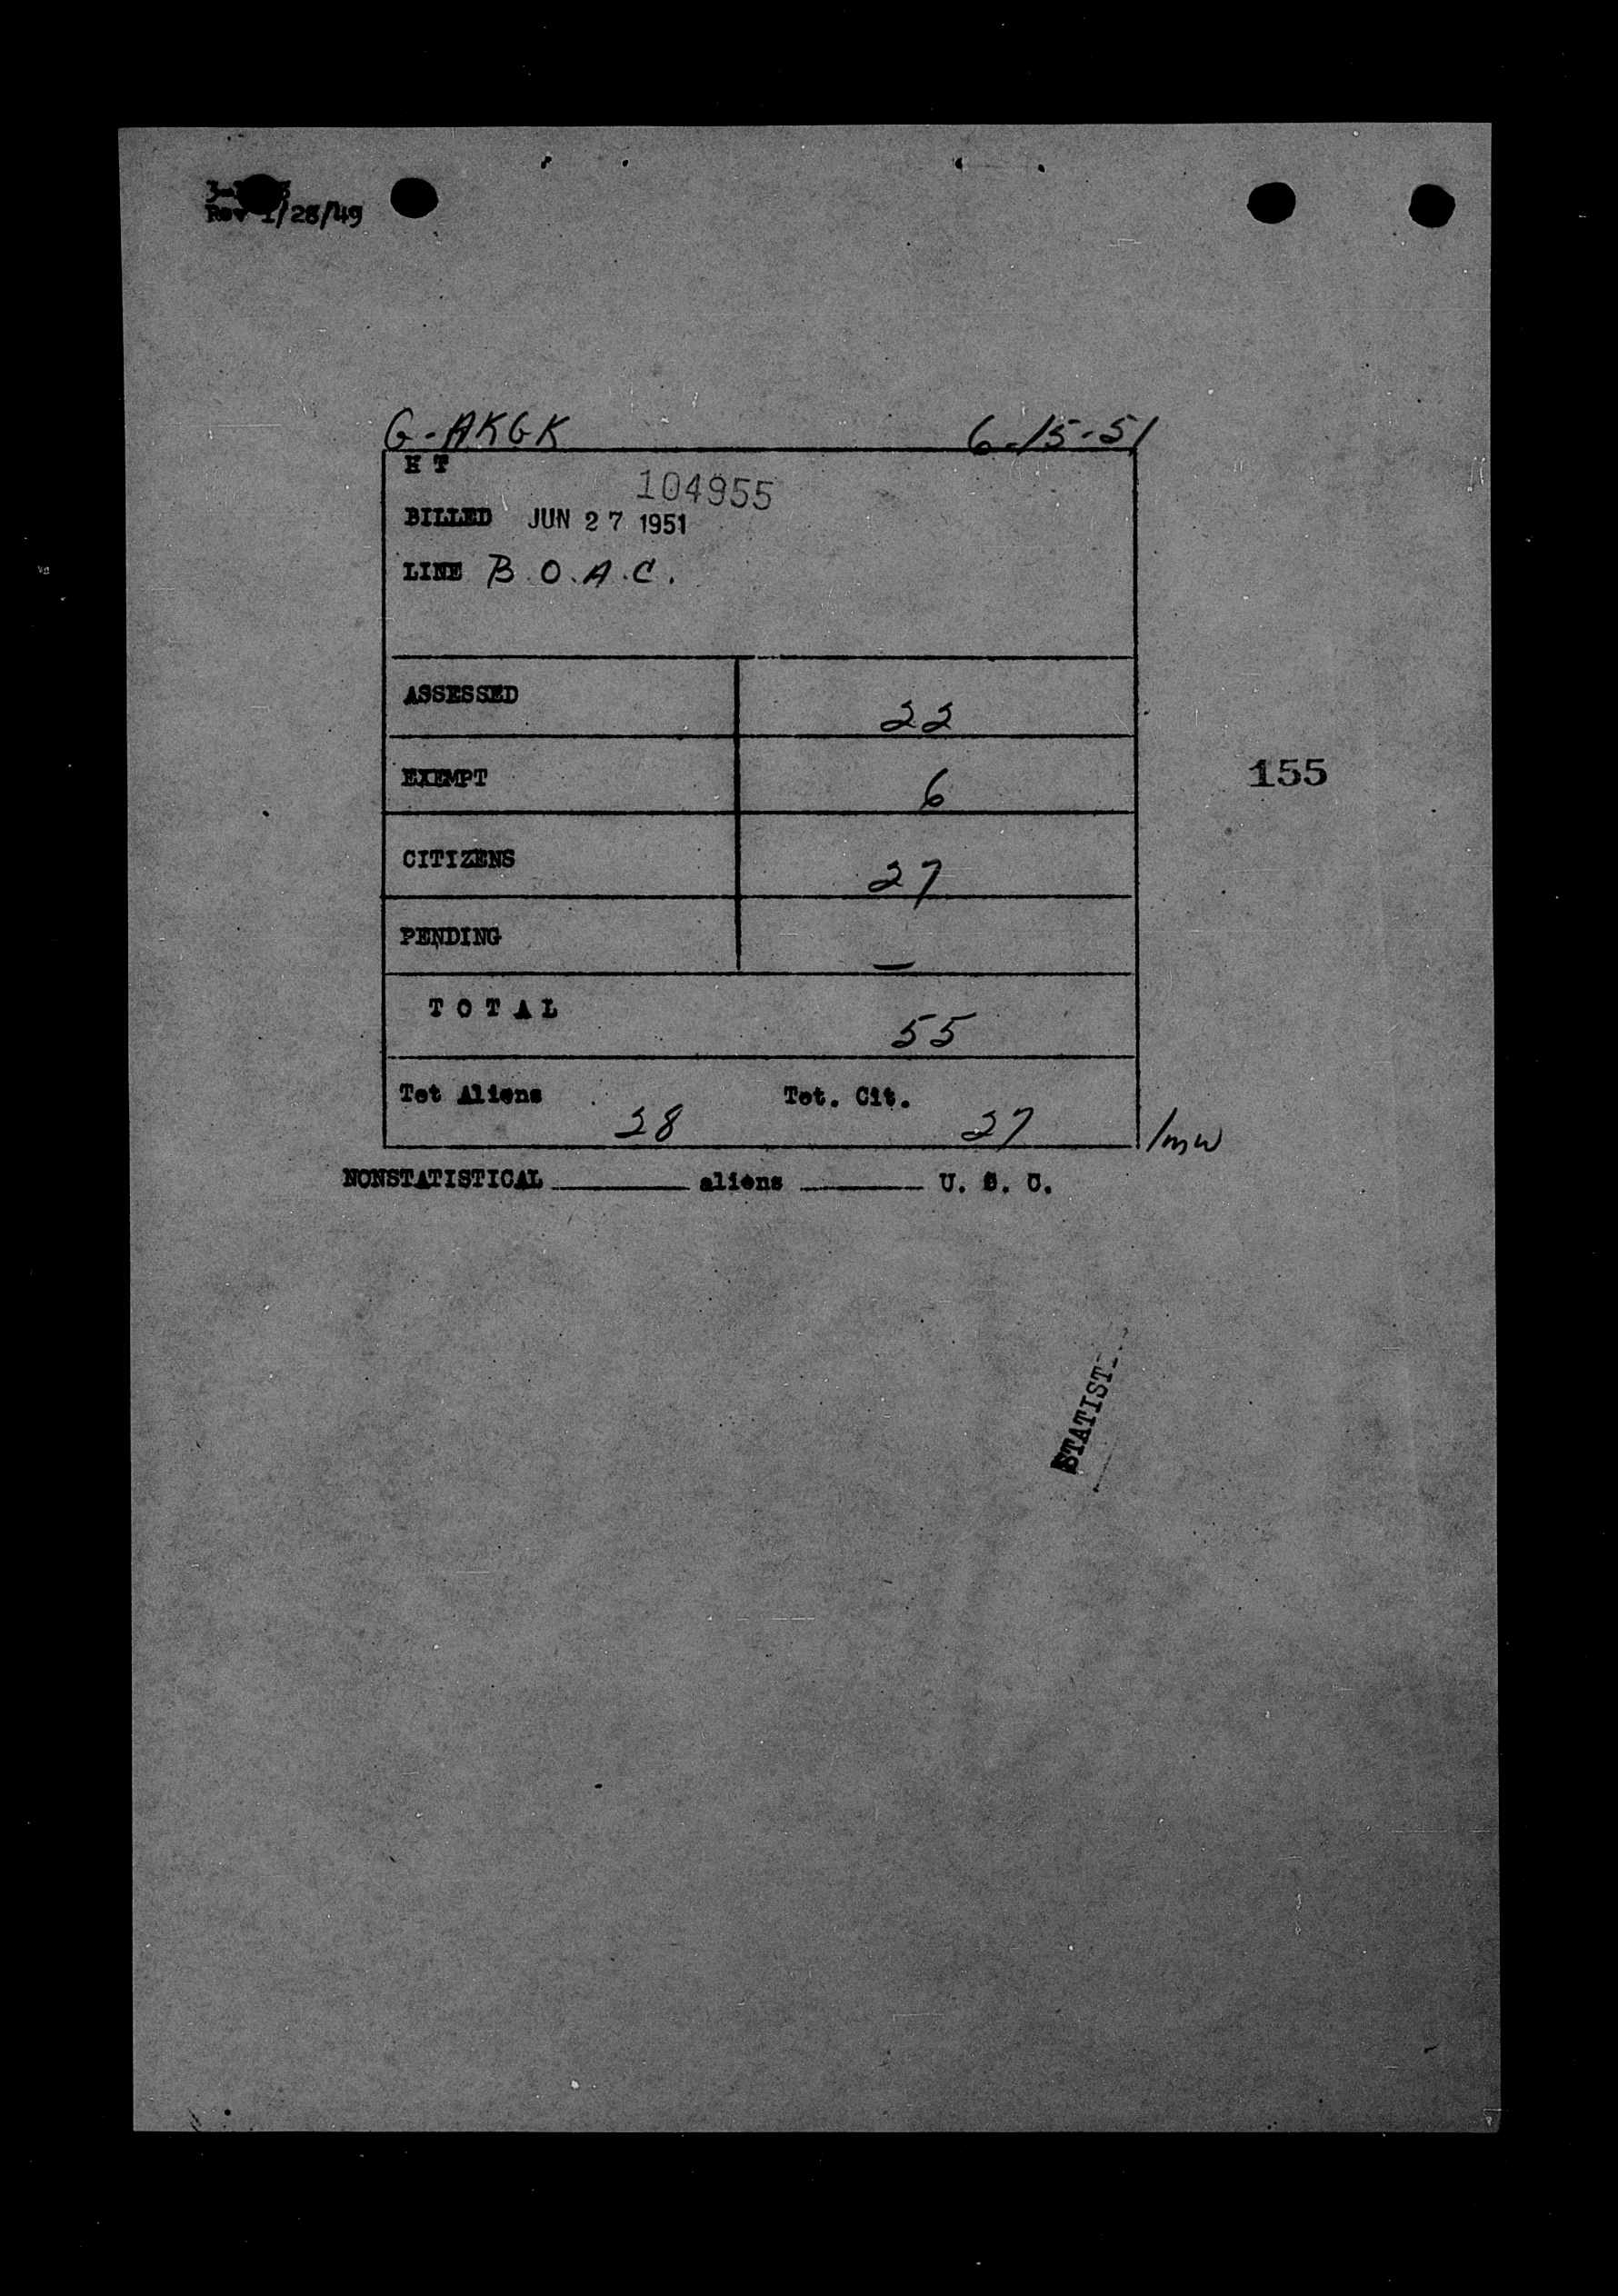 Rev 1/28/49
G-AKGK 6-15-51
H T
104955
BILLED JUN 27 1951
LINE B.O.A.C.
ASSESSED 22
EXEMPT 6
155
CITIZENS 27
PENDING —
TOTAL 55
Tot Aliens 28 Tot. Cit. 27 /mw
NONSTATISTICAL ______ aliens ______ U. S. C.
STATIST